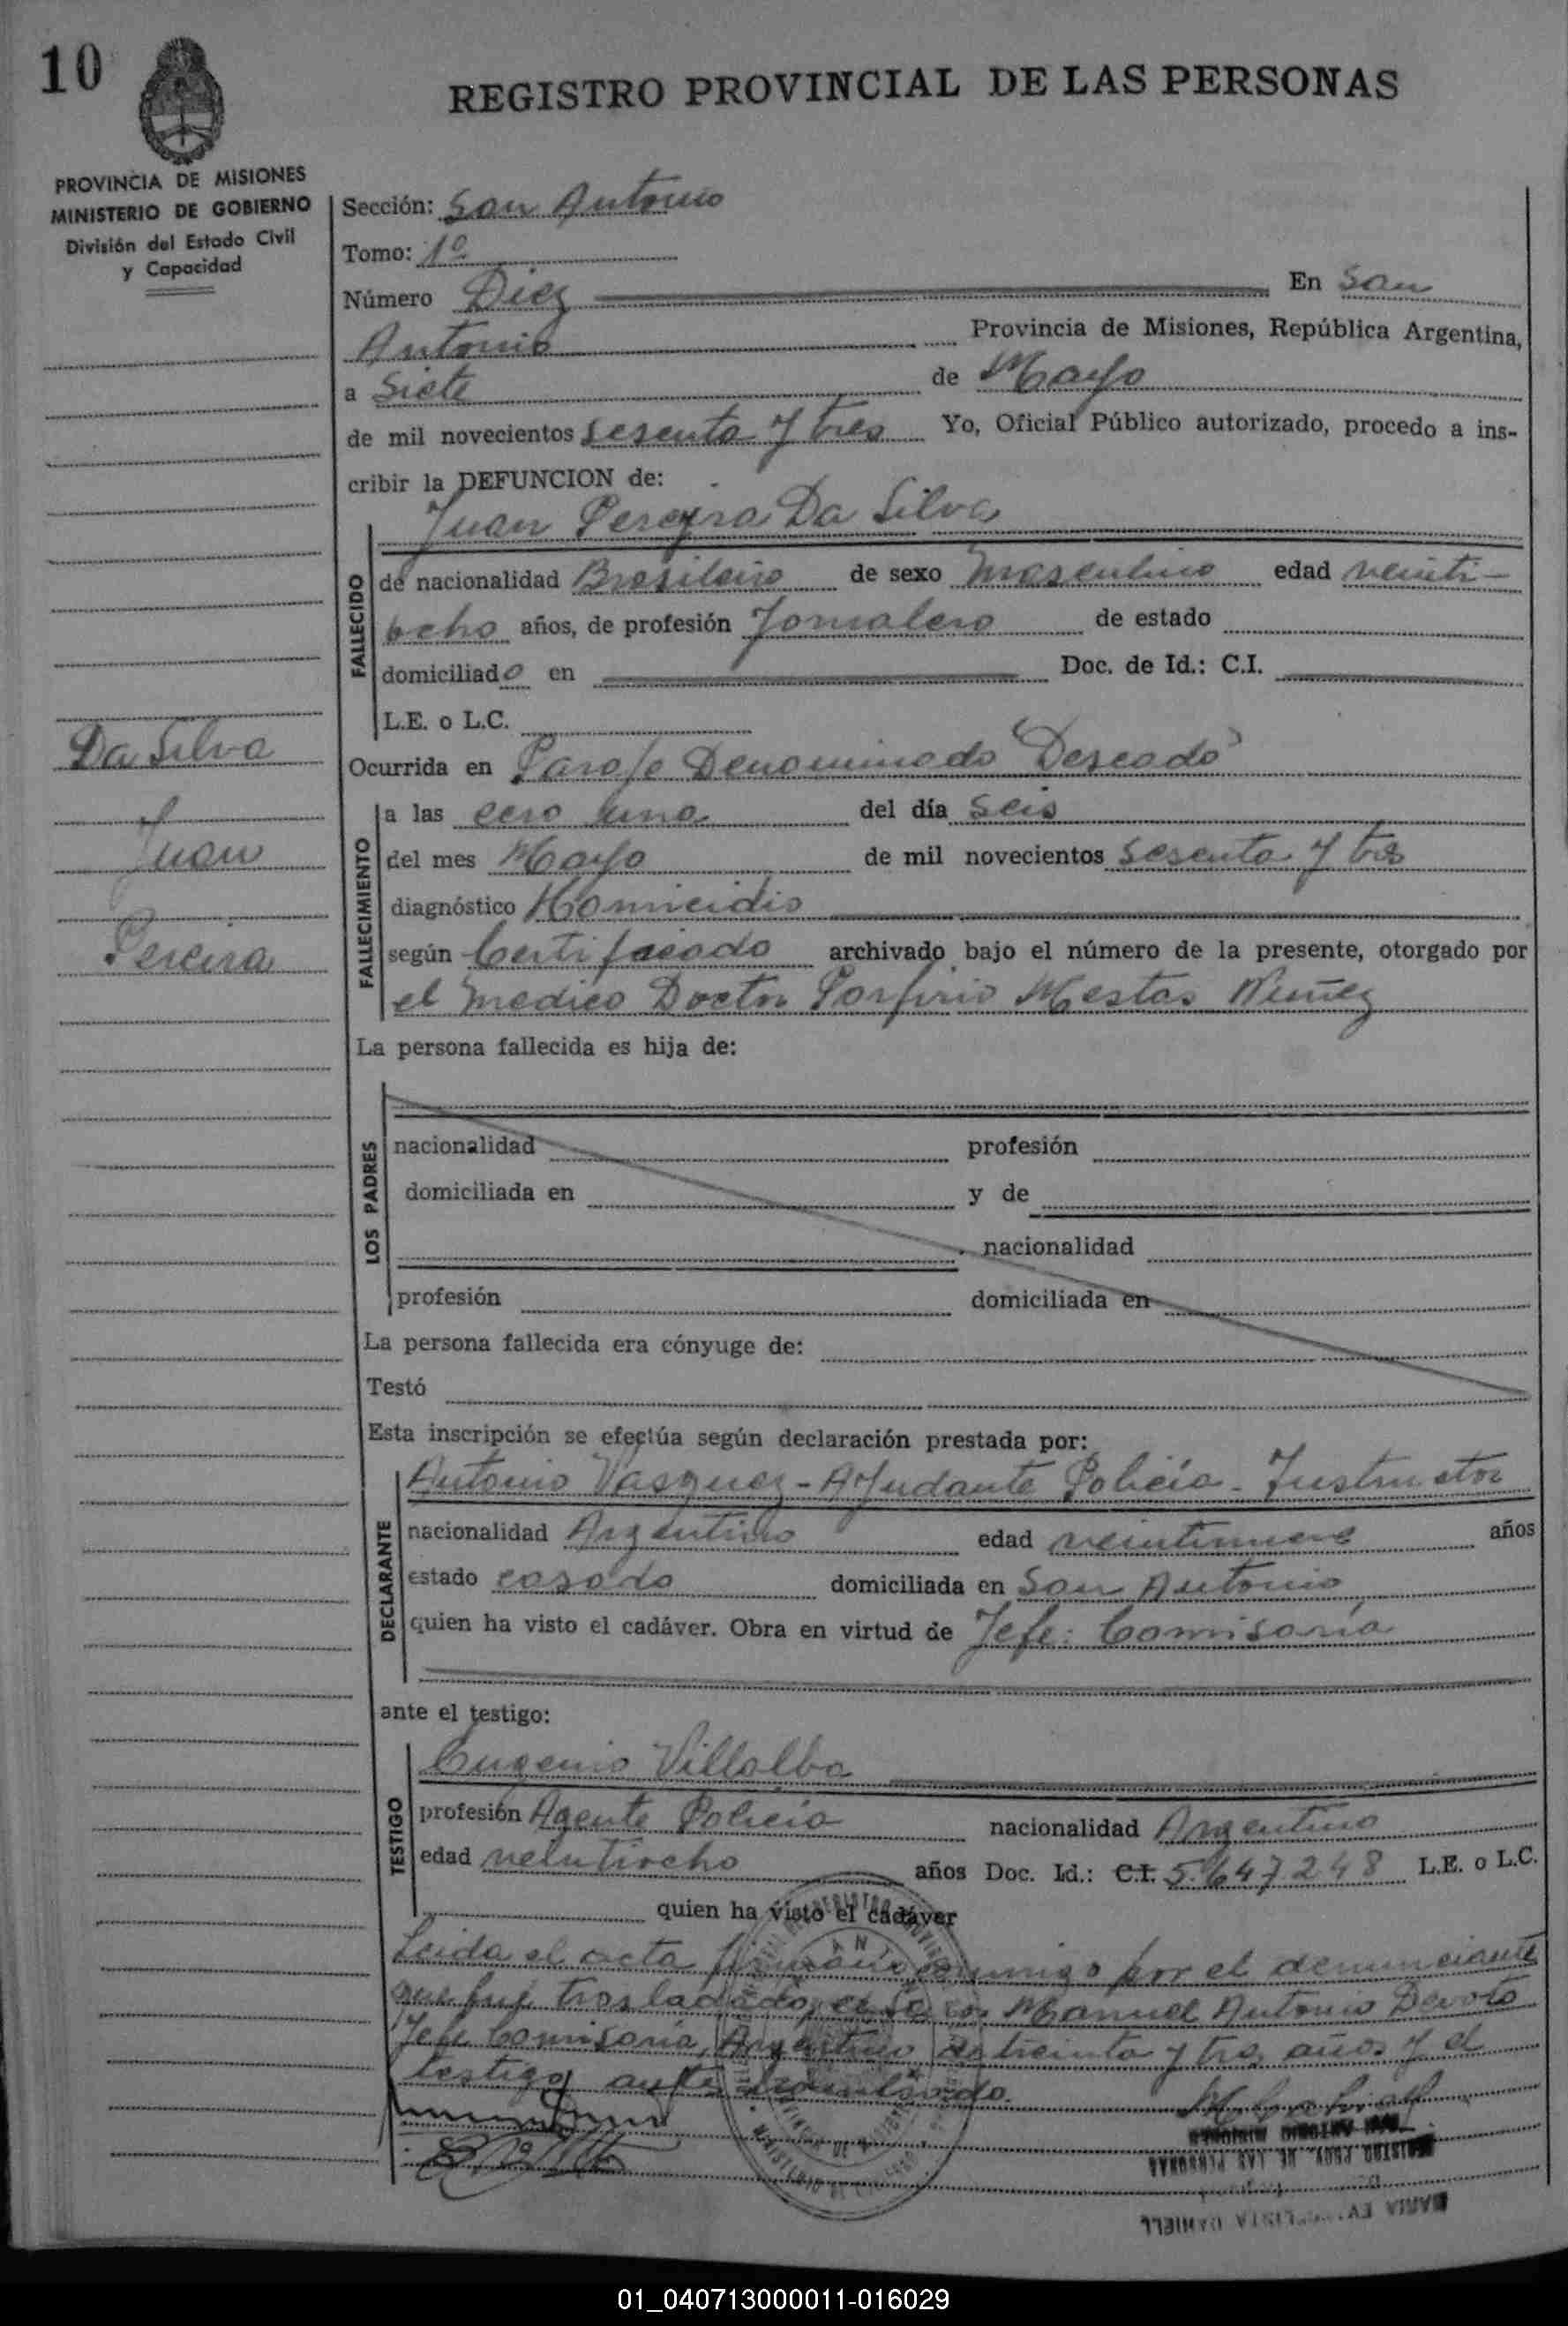 10
REGISTRO PROVINCIAL DE LAS PERSONAS
PROVINCIA DE MISIONES
MINISTERIO DE GOBIERNO
División del Estado Civil
y Capacidad
Sección: San Antonio
Tomo: 1º
Número Diez En San
Antonio Provincia de Misiones, República Argentina,
a Siete de Mayo
de mil novecientos sesenta y tres Yo, Oficial Público autorizado, procedo a ins-
cribir la DEFUNCION de:
Juan Pereyra Da Silva
FALLECIDO
de nacionalidad Brasileiro de sexo Masculino edad veinti-
ocho años, de profesión Jornalero de estado
domiciliado en Doc. de Id.: C.I.
L.E. o L.C.
Da Silva
Juan
Pereira
Ocurrida en Paraje Denominado "Deseado"
FALLECIMIENTO
a las cero una del día seis
del mes Mayo de mil novecientos sesenta y tres
diagnóstico Homicidio
según Certificado archivado bajo el número de la presente, otorgado por
el medico Doctor Porfirio Mestas Nuñez
La persona fallecida es hija de:
LOS PADRES
nacionalidad profesión
domiciliada en y de
nacionalidad
profesión domiciliada en
La persona fallecida era cónyuge de:
Testó
Esta inscripción se efectúa según declaración prestada por:
Antonio Vasquez - Ayudante Policía - Instructor
DECLARANTE
nacionalidad Argentino edad veintinueve años
estado casado domiciliada en San Antonio
quien ha visto el cadáver. Obra en virtud de Jefe: Comisaría
ante el testigo:
Eugenio Villalba
TESTIGO
profesión Agente Policía nacionalidad Argentino
edad veintiocho años Doc. Id.: C.I. 5.647.248 L.E. o L.C.
quien ha visto el cadáver
Leida el acta por el denunciante
que fué trasladado, Manuel Antonio Devoto
Jefe Comisaría, Argentino de treinta y tres años y el
testigo
REGISTRO PROV. DE LAS PERSONAS
01_040713000011-016029